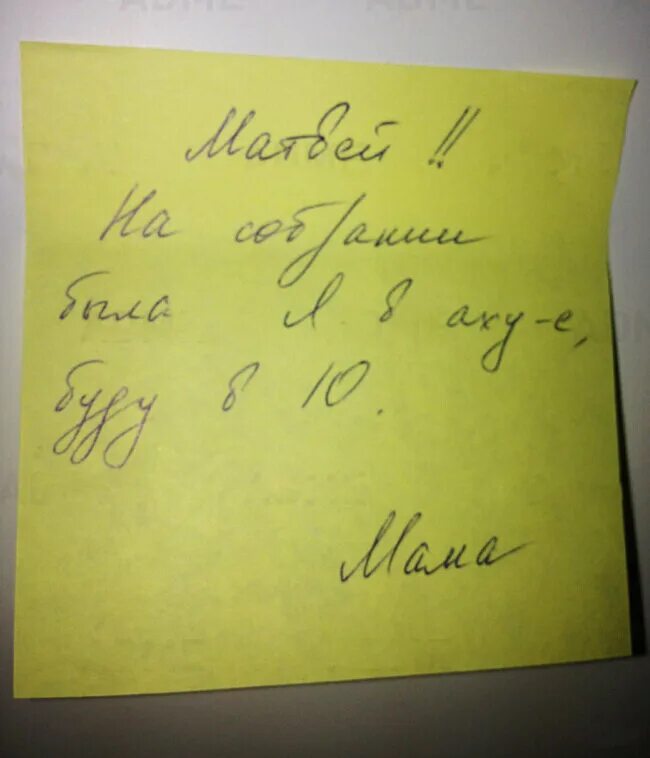 Матвей !!
На собрании
была Я в аху-е,
буду в 10.
Мама